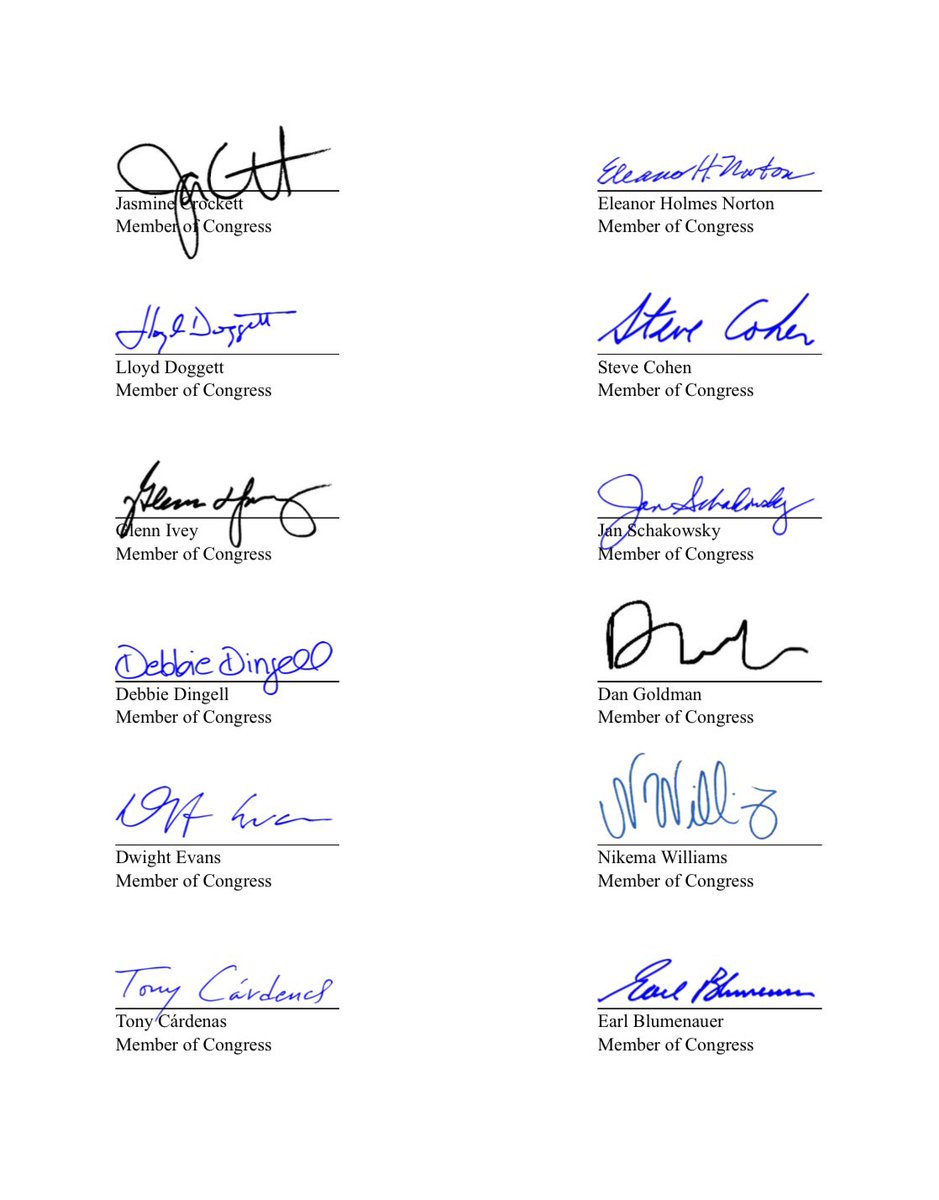 Jasmine Crockett
Member of Congress
Eleanor H. Norton
Eleanor Holmes Norton
Member of Congress
Lloyd Doggett
Lloyd Doggett
Member of Congress
Steve Cohen
Steve Cohen
Member of Congress
Glenn Ivey
Glenn Ivey
Member of Congress
Jan Schakowsky
Jan Schakowsky
Member of Congress
Debbie Dingell
Debbie Dingell
Member of Congress
Dan Goldman
Member of Congress
Dwight Evans
Member of Congress
Nikema Williams
Member of Congress
Tony Cárdenas
Tony Cárdenas
Member of Congress
Earl Blumenauer
Earl Blumenauer
Member of Congress